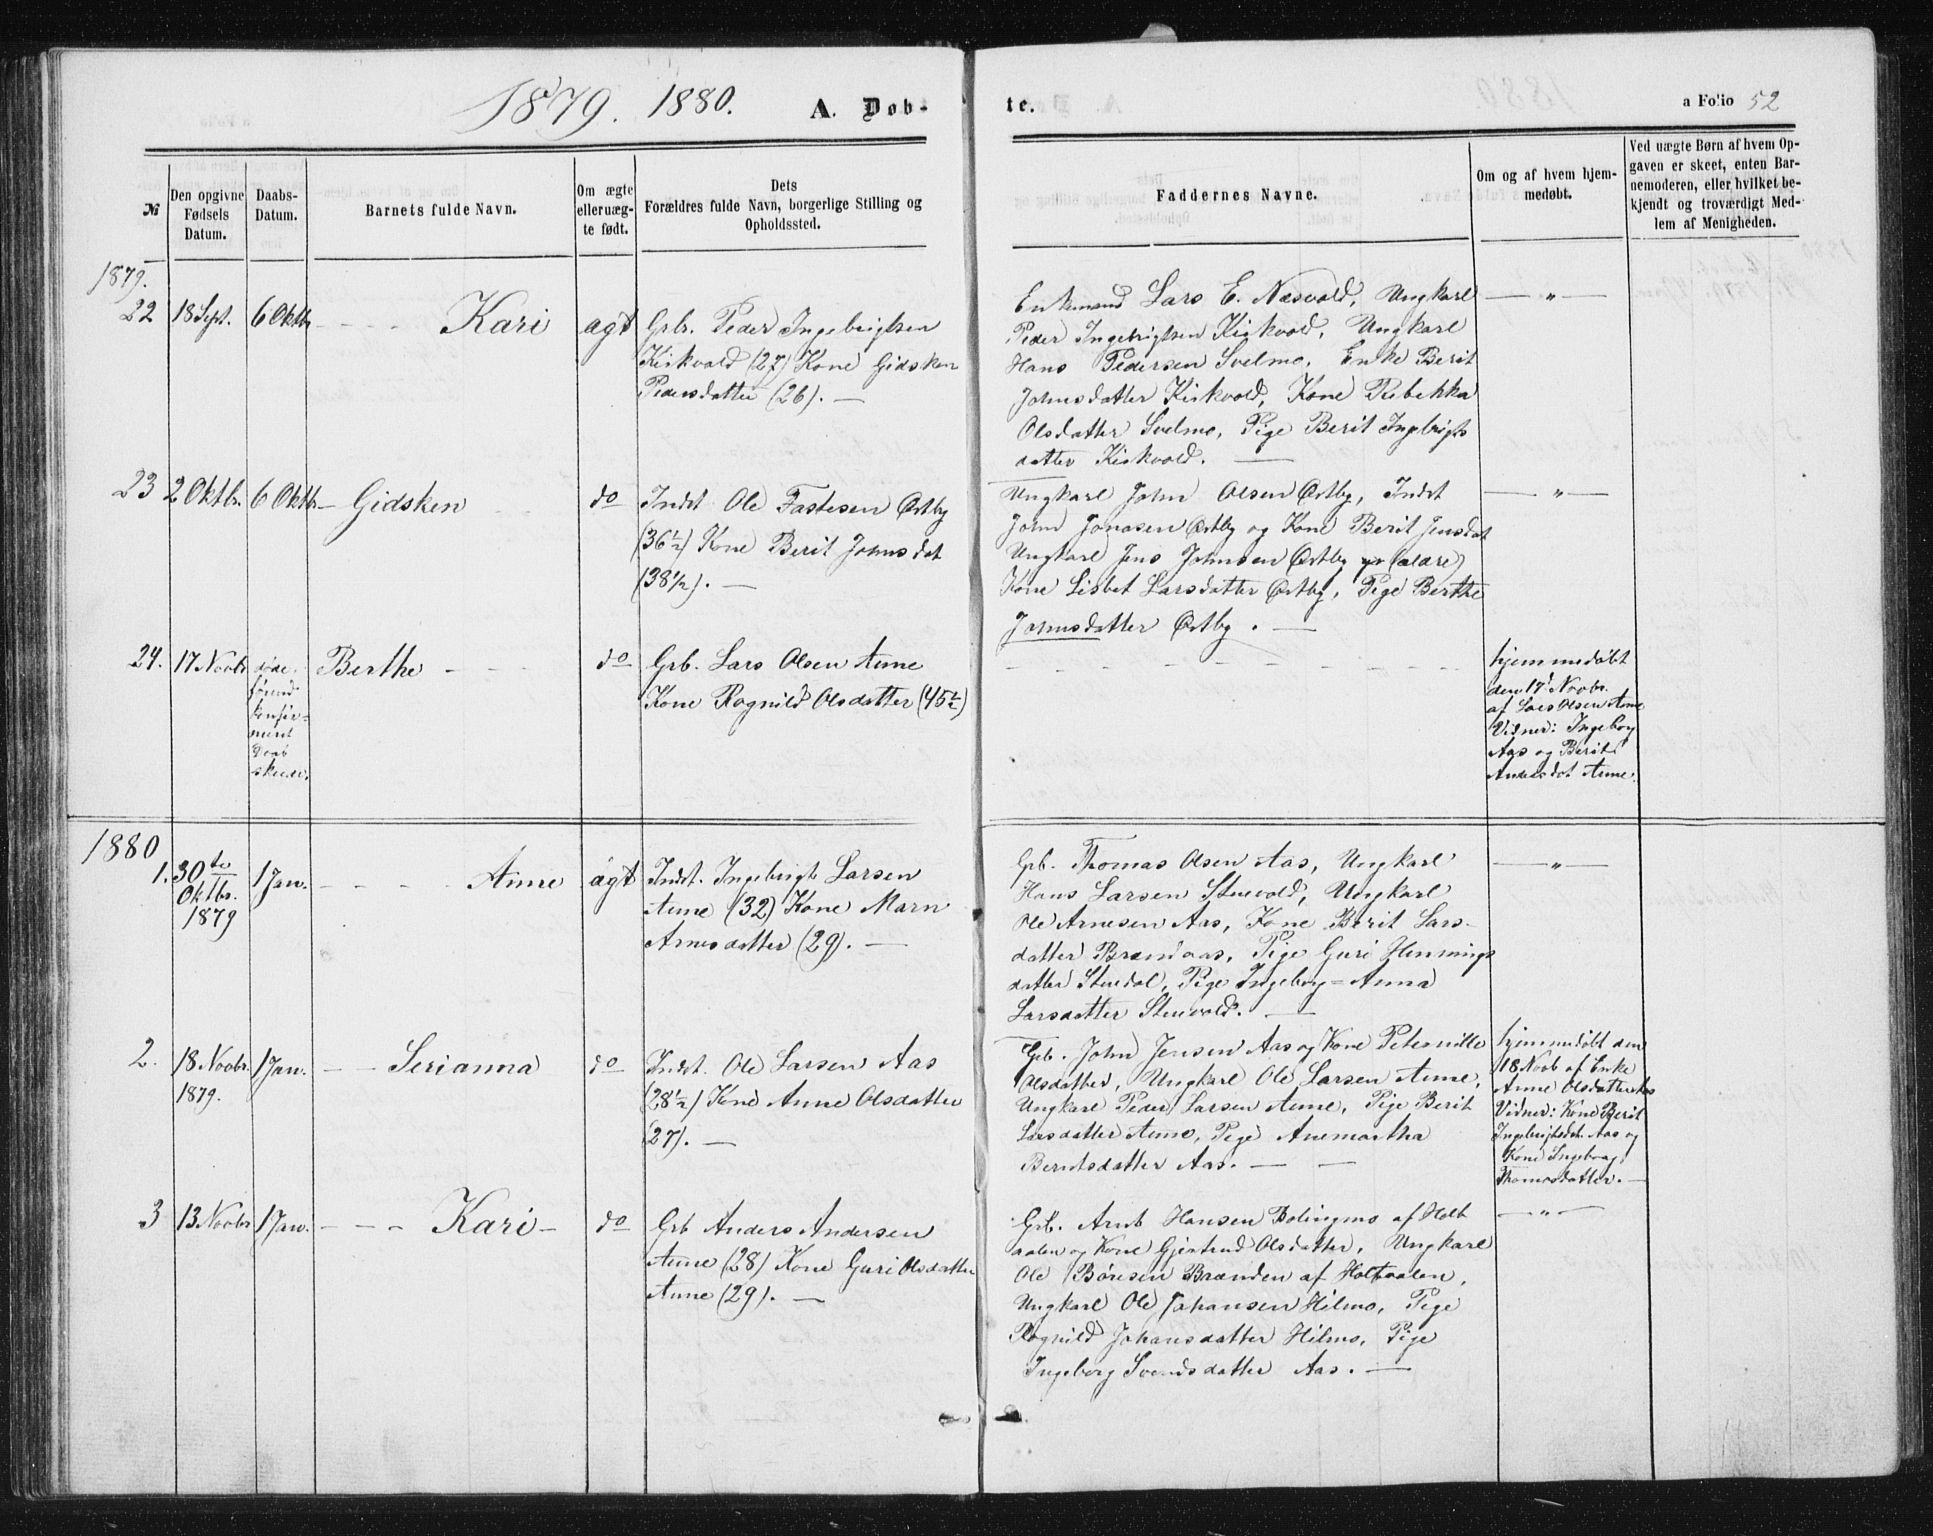 1879. 1880. A. Døb-
te. a Folio 52
№
Den opgivne Fødsels Datum.
Daabs-Datum.
Barnets fulde Navn.
Om ægte eller uæg-te født.
Dets
Forældres fulde Navn, borgerlige Stilling og
Opholdssted.
Faddernes Navne.
Om og af hvem hjem-
medøbt.
Ved uægte Børn af hvem Op-
gaven er skeet, enten Bar-
nemoderen, eller hvilket be-
kjendt og troværdigt Med-
lem af Menigheden.
1879.
22 18 Sept. 6 Oktbr - - - Kari ægt
Grb. Peder Ingebrigtsen
Kirkvold (27) Kone Gidsken
Pedersdatter (26). —
Enkemand Lars E. Næsvold, Ungkarl
Peder Ingebrigtsen Kirkvold, Ungkarl
Hans Pedersen Svelmo, Enke Berit
Johnsdatter Kirkvold, Kone Rebekka
Olsdatter Svelmo, Pige Berit Ingebrigts
datter Kirkvold. —
— " —
23 2 Oktbr. 6 Oktbr. - Gidsken do
Indst. Ole Fastesen Østby
(36½) Kone Berit Johnsdat
(38½). —
Ungkarl John Olsen Østby, Indst
John Jonasen Østby og Kone Berit Jensdat
Ungkarl Jens Johnsen Østby (ældre)
Kone Lisbet Larsdatter Østby, Pige Berthe
Johnsdatter Østby. —
— " —
24. 17 Novbr
døde
førend
konfir=
meret
Daab
skede.
Berthe - - - do
Grb. Lars Olsen Aune
Kone Ragnild Olsdatter (45½)
hjemmedøbt
den 17d Novbr.
af Lars Olsen Aune
Vidner: Ingeborg
Aas og Berit
Andersdat Aune.
1880
1. 30te
Oktbr.
1879
1 Jan. - - - - Anne ægt
Indst. Ingebrigt Larsen
Aune (32) Kone Marn
Arnesdatter (29). —
Grb. Thomas Olsen Aas, Ungkarl
Hans Larsen Stuevold, Ungkarl
Ole Arnesen Aas, Kone Berit Lars-
datter Brændaas, Pige Guri Hennings
datter Stuedal, Pige Ingeborg=Anna
Larsdatter Stuevold. —
— " —
2. 18 Novbr.
1879.
1 Jan. - - Serianna do
Indst. Ole Larsen Aas
(28½) Kone Anne Olsdatter
(27). —
Grb. John Jensen Aas og Kone Peternille
Olsdatter, Ungkarl Ole Larsen Aune,
Ungkarl Peder Larsen Aune, Pige Berit
Larsdatter Aune, Pige Anemartha
Berntsdatter Aas. — —
hjemmedøbt den
18 Novb af Enke
Anne Olsdatter Aas
Vidner: Kone Berit
Ingebrigtsdt. Aas og
Kone Ingeborg
Thomasdatter. —
3 13 Novbr 1 Jan. - - - Kari - do
Grb Anders Andersen
Aune (28) Kone Guri Olsdatter
Aune (29). —
Grb. Arnt Hansen Bolingmo af Holt
aalen og Kone Gjertrud Olsdatter, Ungkarl
Ole Børesen Brænden af Holtaalen,
Ungkarl Ole Johansen Hilmo, Pige
Ragnild Johansdatter Hilmo, Pige
Ingeborg Svendsdatter Aas. —
— " —